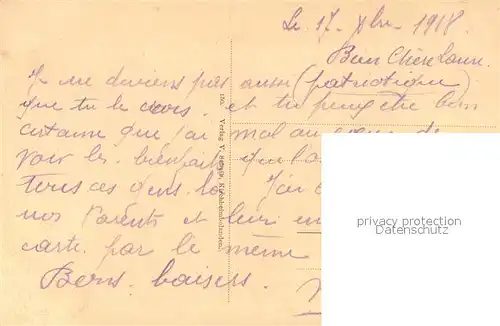 Le 17. Xbre 1918.
Bien Chère
Je ne deviens pas aussi (patriotique)
que tu le crois. et tu peux être bien
certaine que j'ai mal au coeur de
voir les bienfaits que
tous ces gens là J'ai
nos Parents et leur
carte par le même
Bons baisers.
Verlag V.
privacy protection
Datenschutz